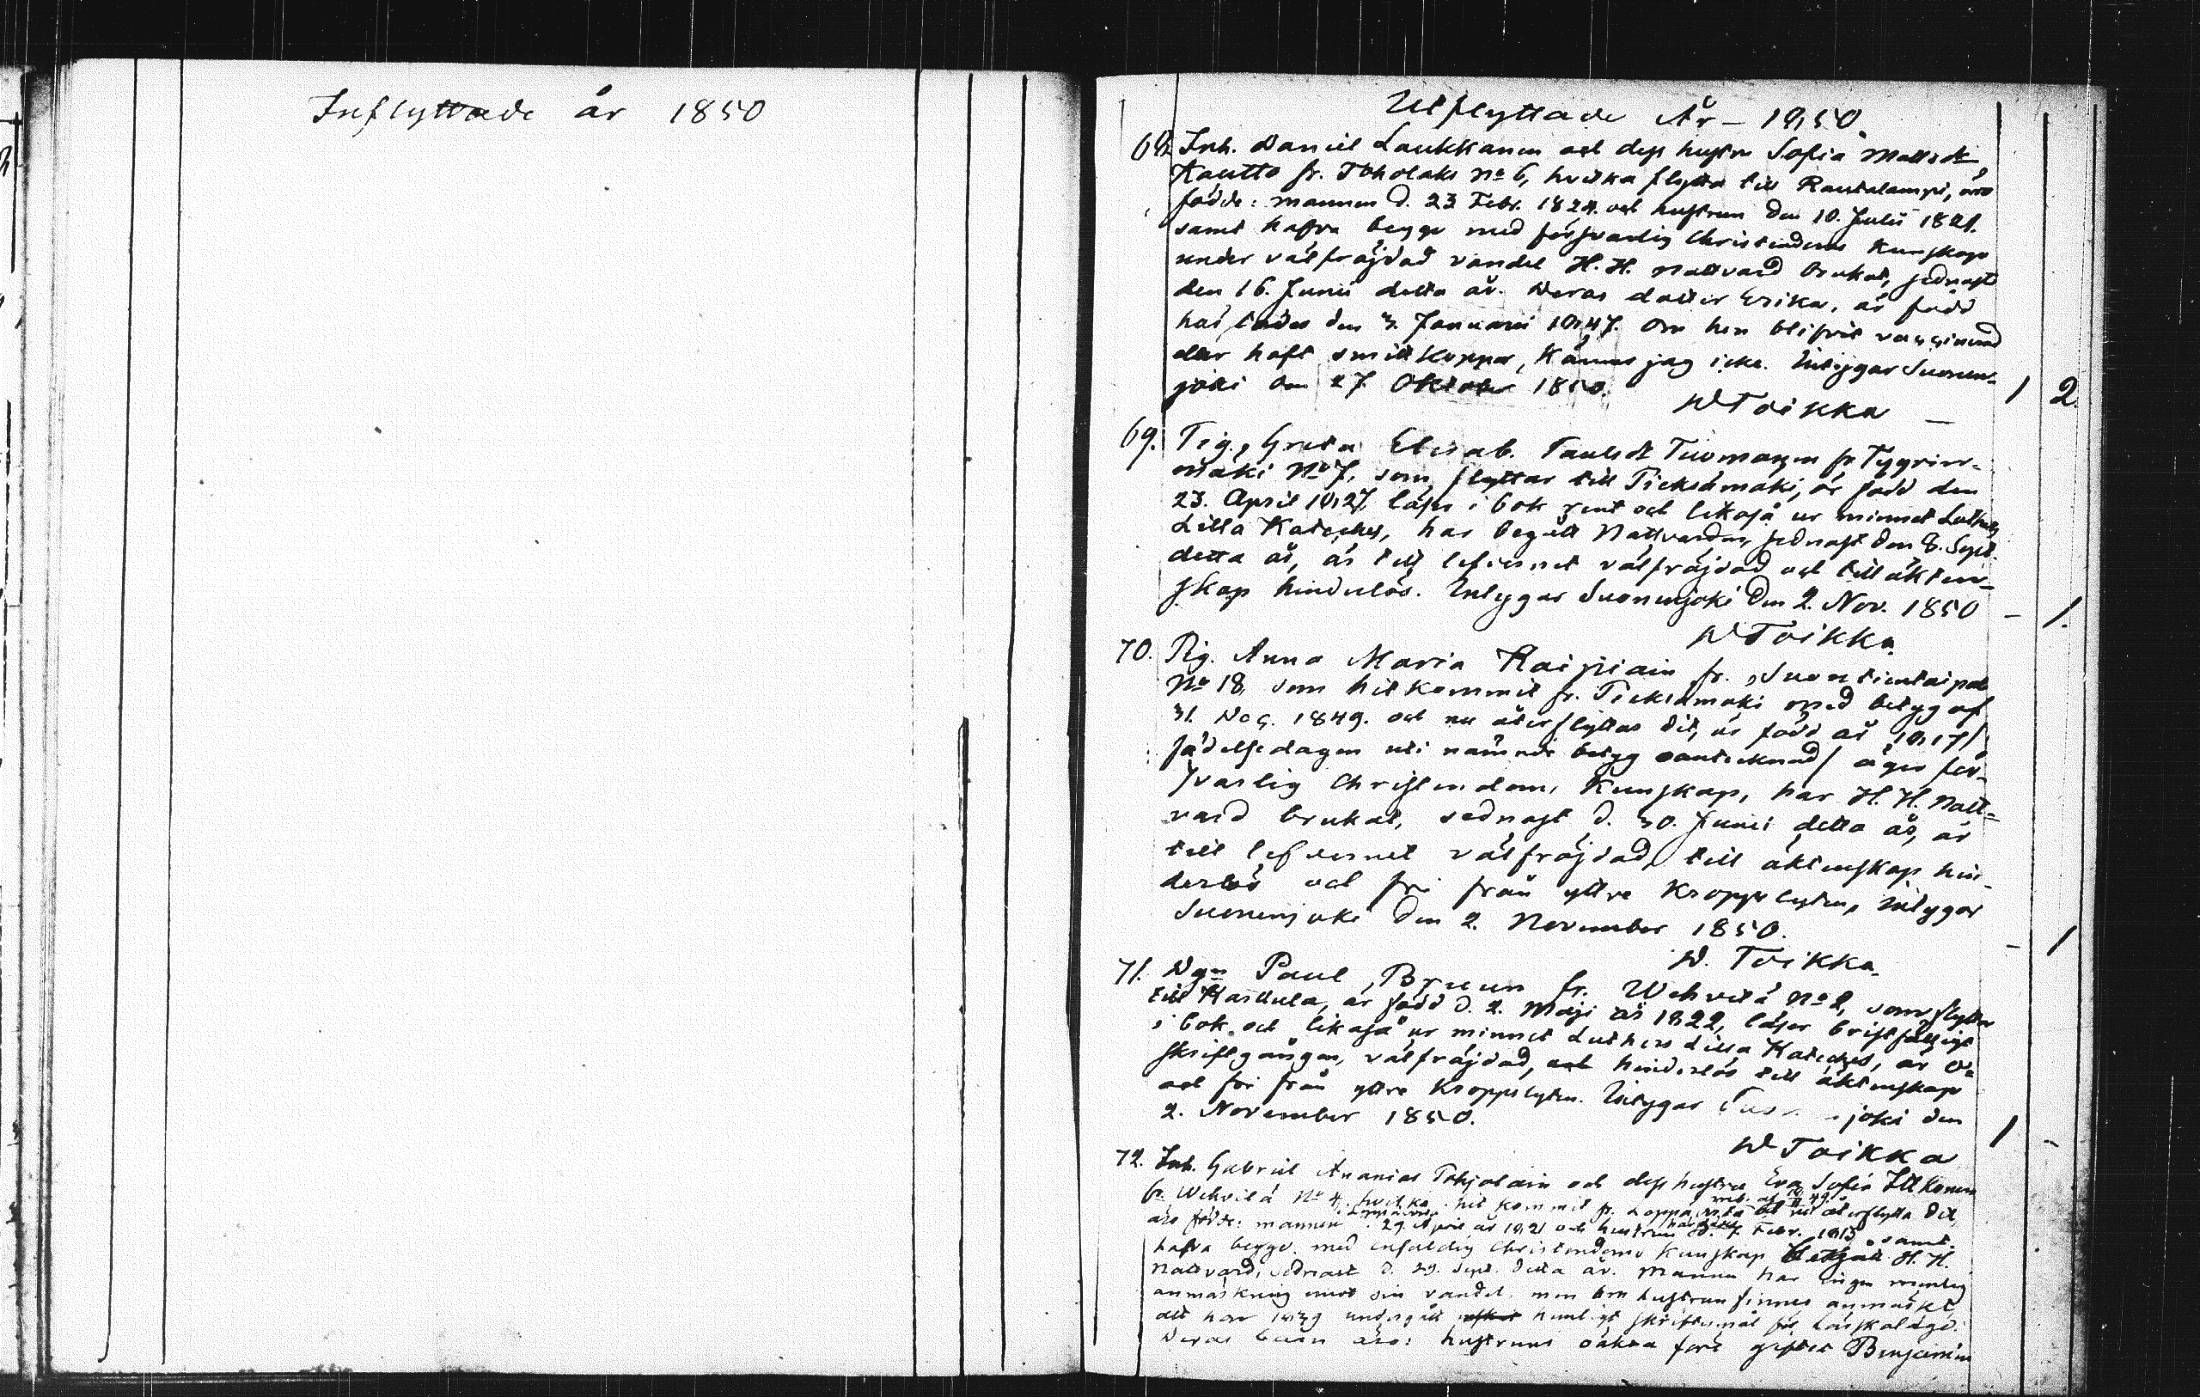 Inflyttade år 1850
Utflyttade År - 1850
68. Inh. Daniel Laukkanen och dess hustru Sofia Mattsdr
Kautto fr. Toholaks No 6, hvilka flytta till Rautalampi, äro
födde: mannen d. 23 Febr. 1824 och hustrun den 10. Julii 1821.
samt hafva begge med försvarlig Christendoms Kunskap
under välfräjdad vandel H. H. Nattvard brukat, sednast
den 16. Junii detta år. Deras dotter Erika, är född
härstädes den 3. Januarii 1847. Om hon blifvit vaccinerad
eller haft smittkoppor, känner jag icke. Intygar Suonen-
joki den 27. Oktober 1850. 1 2.
W Toikka
69. Pig. Greta Elisab. Paulsdr Tuomainen fr Tyyrin-
mäki No 7, som flyttar till Pieksämäki, är född den
23. April 1827, läser i bok rent och likaså ur minnet Luthers
Lilla Kateches, har begått Nattvarden, sednast den 8. Sept.
detta år, är till lefvernet välfräjdad och till äkten-
skap hinderlös. Intygar Suonenjoki den 2. Nov. 1850 - 1.
W Toikka
70. Pig. Anna Maria Kaipiain fr. Suontientaipal
No 18, som hitkommit fr. Pieksämäki med betyg af
31. Dec. 1849. och nu återflyttar dit, är född år 1817/
födelsedagen uti nämnde betyg oantecknad/ äger för-
svarlig Christendoms Kunskap, har H. H. Natt-
vard brukat, sednast d. 30. Junii detta år, är
till lefvernet välfräjdad, till äktenskap hin-
derlös och fri från yttre Kroppslyten, intygar
Suonenjoki den 2. November 1850. - 1
W. Toikka
71. Dgn Paul Bruun fr. Wehvilä No 2, som flyttar
till Karttula, är född d. 2. Maji år 1822, läser bristfälligt
i bok och likaså ur minnet Luthers Lilla Kateches, är o-
skriftgången, välfräjdad, och hinderlös till äktenskap
och fri från yttre Kroppslyten. Intygar joki den
2. November 1850. 1 -
W Toikka
72. Inh. Gabriel Ananias Pohjolain och dess hustru Eva Sofia Ilkkonen
fr. Wehvilä No 4, hvilka hit kommit fr. och nu återflytta dit,
äro födde: mannen 29 April år 1821 och hustrun d. 7 Febr. 1813, samt
hafva begge med enfaldig Christendoms Kunskap begått H. H.
Nattvard, sednast d. 29. Sept. detta år. Mannen har ingen menlig
anmärkning mot sin vandel men om hustrun finnes anmärkt
att hon 1839 undergått hemligt skriftermål för Lönskaläge.
Deras barn äro: hustruns oäkta före giftet Benjamin